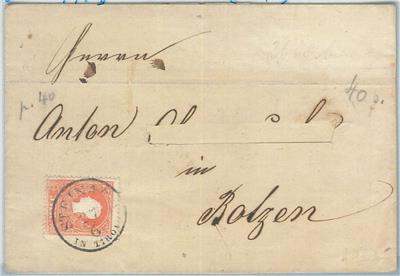 Herrn
p. 40
40.
Anton
in
Botzen
STEINACH
IN TIROL